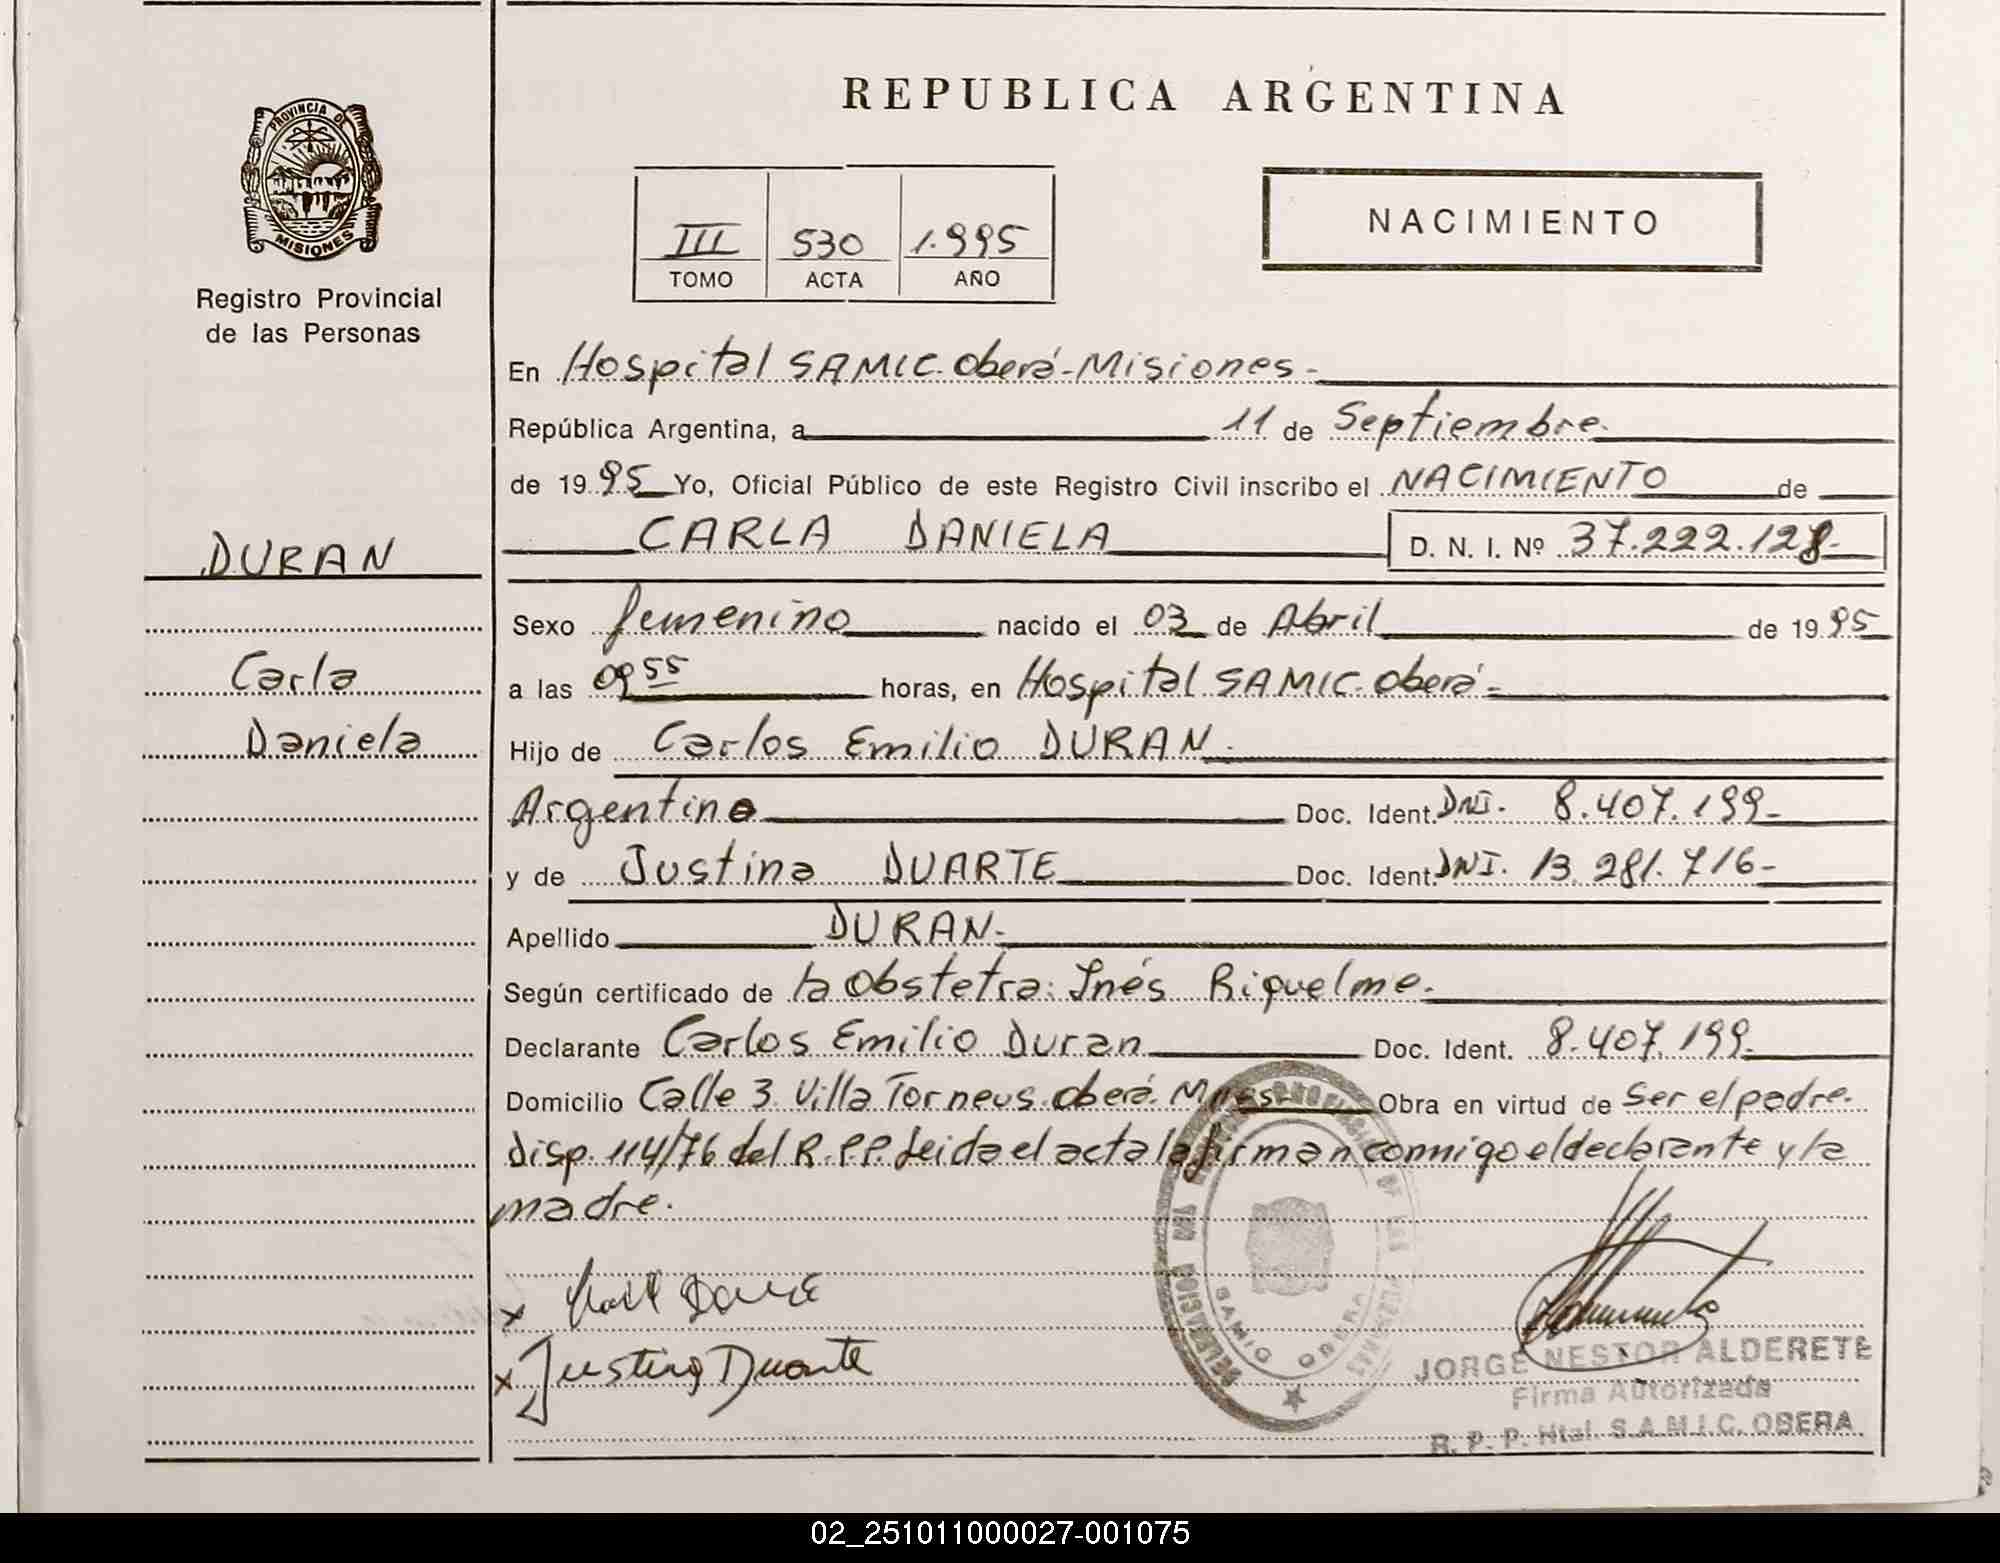 REPUBLICA ARGENTINA
PROVINCIA DE
MISIONES
Registro Provincial
de las Personas
III 530 1.995
TOMO ACTA AÑO
NACIMIENTO
En Hospital SAMIC. Oberá-Misiones-
República Argentina, a 11 de Septiembre.
de 1995 Yo, Oficial Público de este Registro Civil inscribo el NACIMIENTO de
DURAN
CARLA DANIELA D. N. I. Nº 37.222.128-
Sexo femenino nacido el 03 de Abril de 1995
Carla
a las 09 55 horas, en Hospital SAMIC. Oberá-
Daniela
Hijo de Carlos Emilio DURAN.
Argentino Doc. Ident. DNI. 8.407.199-
y de Justina DUARTE Doc. Ident. DNI. 13.281.716-
Apellido DURAN-
Según certificado de la Obstetra: Inés Riquelme.
Declarante Carlos Emilio Duran Doc. Ident. 8.407.199.
Domicilio Calle 3 Villa Torneus. Oberá. Mnes Obra en virtud de Ser el padre.
Disp. 114/76 del R.P.P. Leida el acta la firman conmigo el declarante y la
madre.
x
x Justina Duarte
SAMIC OBERA
JORGE NESTOR ALDERETE
Firma Autorizada
R. P. P. Htal. S.A.M.I.C. OBERA
02_251011000027-001075